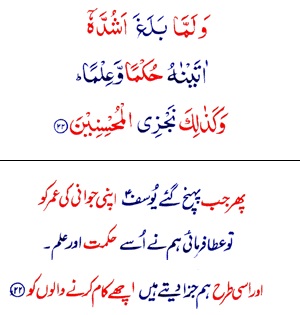 وَلَمَّا بَلَغَ اَشُدَّهٗۤ
اٰتَيْنٰهُ حُكْمًا وَّعِلْمًا ؕ
وَكَذٰلِكَ نَجْزِى الْمُحْسِنِيْنَ ﴿۲۲﴾
پھر جب پہنچ گئے یُوسفؑ اپنی جوانی کی عمر کو
تو عطا فرمائی ہم نے اُسے حکمت اور علم ۔
اور اسی طرح ہم جزا دیتے ہیں اچھے کام کرنے والوں کو ﴿۲۲﴾